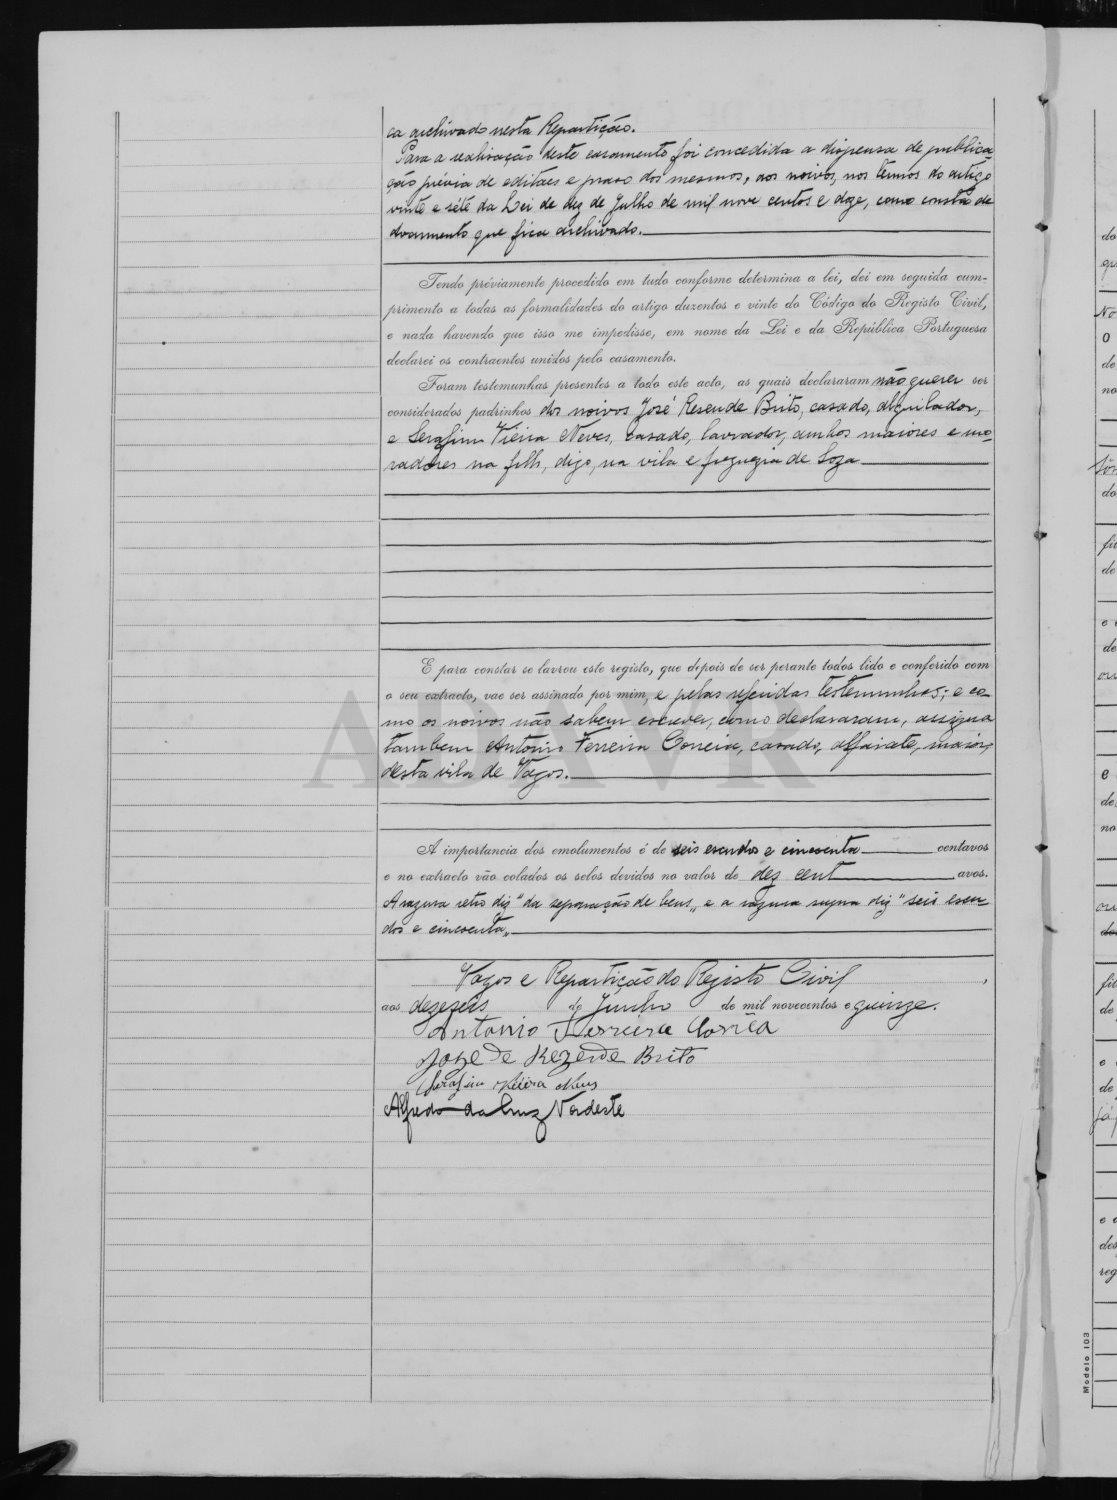 ca archivado nesta Repartição.
Para a realisação deste casamento foi concedida a dispensa de publica-
ção prévia de editaes e praso dos mesmos, aos noivos, nos termos do artigo
vinte e sete da Lei de dez de Julho de mil nove centos e doze, como consta de
documento que fica archivado.
Tendo préviamente procedido em tudo conforme determina a lei, dei em seguida cum-
primento a todas as formalidades do artigo duzentos e vinte do Código do Registo Civil,
e nada havendo que isso me impedisse, em nome da Lei e da República Portuguesa
declarei os contraentes unidos pelo casamento.
Foram testemunhas presentes a todo este acto, as quais declararam não querer ser
considerados padrinhos dos noivos José Resende Brito, casado, alquilador,
e Serafim Vieira Neves, casado, lavrador, ambos maiores e mo-
radores na filh, digo, na vila e freguezia de Soza
E para constar se lavrou este registo, que depois de ser perante todos lido e conferido com
o seu extracto, vae ser assinado por mim, e pelas referidas testemunhas; e co-
mo os noivos não sabem escrever, como declararam, assigna
tambem Antonio Ferreira Correia, casado, alfaiate, maior,
desta vila de Vagos.
ADAVR
A importancia dos emolumentos é de seis escudos e cincoenta centavos
e no extracto vão colados os selos devidos no valor de dez cent avos.
A razura retro diz "da separação de bens„ e a razura supra diz "seis escu-
dos e cincoenta„
Vagos e Repartição do Registo Civil,
aos dezeseis de Junho de mil novecentos e quinze.
Antonio Ferreira Corrêa
Joze de Rezende Brito
Serafim Vieira Neves
Alfredo da Cruz Nordeste
Modelo 103